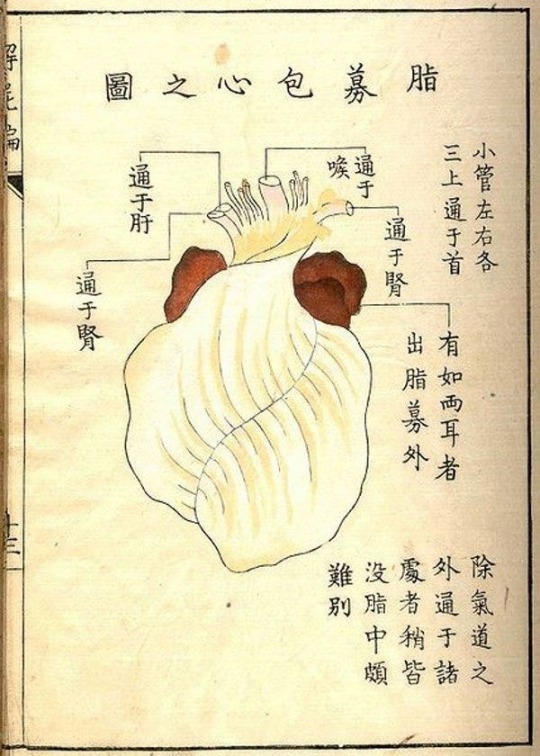 脂募包心之圖
小管左右各
三上通于首
通于
喉
通于腎
通于肝
通于腎
有如両耳者
出脂募外
除氣道之
外通于諸
處者稍皆
没脂中頗
難別